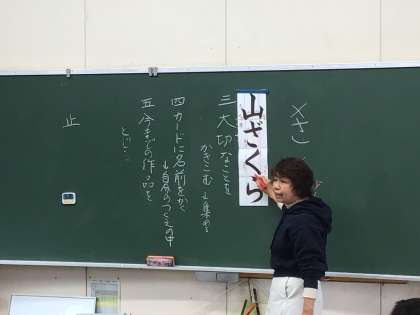 山ざくら
三 大切なことを
かきこむ→集める
四 カードに名前をかく
→自分のつくえの中
五 今までの作品を
とじる
止